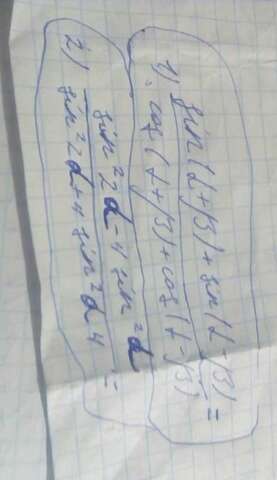 1) sin(α+β)+sin(α-β) =
cos(α+β)+cos(α-β)
2) sin²2α-4sin²α =
sin²2α+4sin²α 4